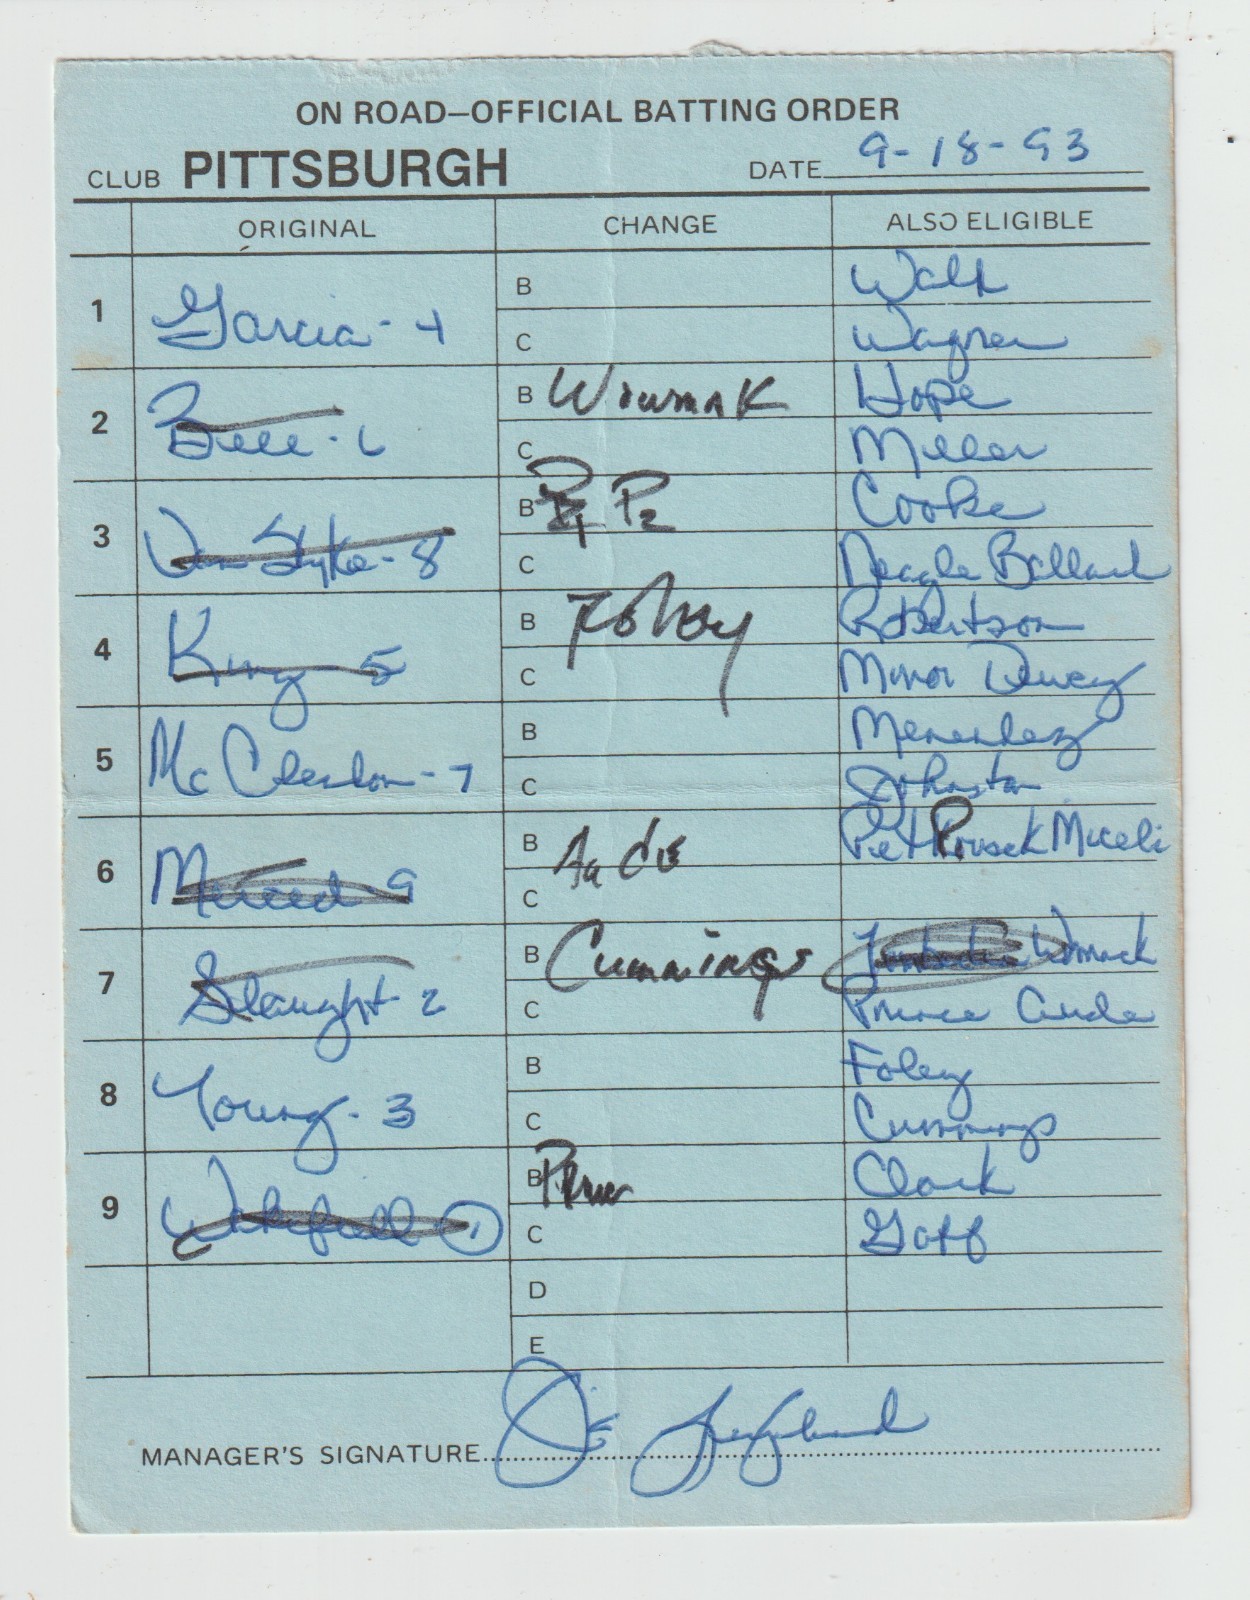 ON ROAD—OFFICIAL BATTING ORDER
CLUB PITTSBURGH DATE 9-18-93
ORIGINAL CHANGE ALSO ELIGIBLE
1 Garcia - 4 B Walk
C Wagner
2 Bell - 6 B Womack Hope
C Miller
3 Van Slyke - 8 B P1 P2 Cooke
C Neagle Ballard
4 King 5 B Foley Robertson
C Minor Dewey
5 McClendon - 7 B Menendez
C Johnston
6 Merced 9 B Aude Petkovsek Miceli
C
7 Slaught 2 B Cummings Womack
C Prince Aude
8 Young - 3 B Foley
C Cummings
9 Wakefield 1 B Clark
C Goff
D
E
MANAGER'S SIGNATURE Jim Leyland